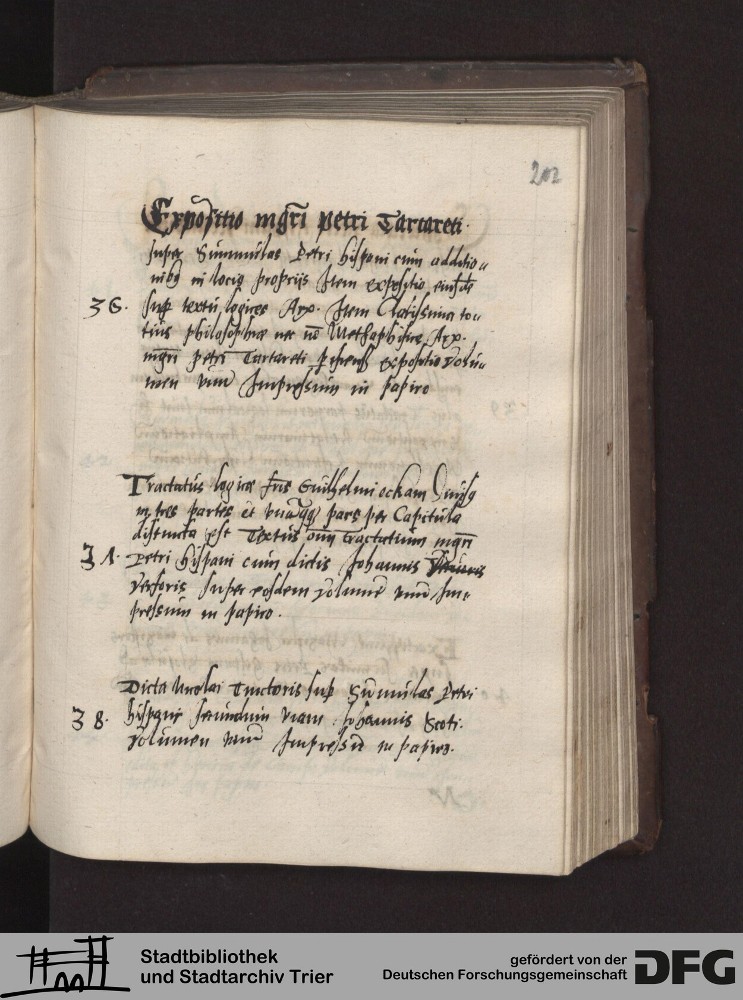 202
Expositio mgri petri Tartareti
super Summulas Petri hispani cum additio„
nibus in locis proprijs Item expositio eiusdem
36. sup textu logices Arp. Item Clarissima to„
tius philosophiae nec no Methaphisice Arp.
mgri petri Tartareti expositio Volu„
men unu Impressum in papiro
Tractatus logice fris Guilhelmi ockam
in tres partes et unaqq pars per Capitula
distincta est Textus oim tractatuum mgri
37. Petri hispani cum dictis Johannis
Versoris super eosdem volume unu Im„
pressum in papiro.
Dicta Nicolai Tinctoris sup Summulas Petri
38. hispani secundum viam Johannis Scoti.
volumen unu Impressu in papiro.
Stadtbibliothek
und Stadtarchiv Trier
gefördert von der
Deutschen Forschungsgemeinschaft
DFG